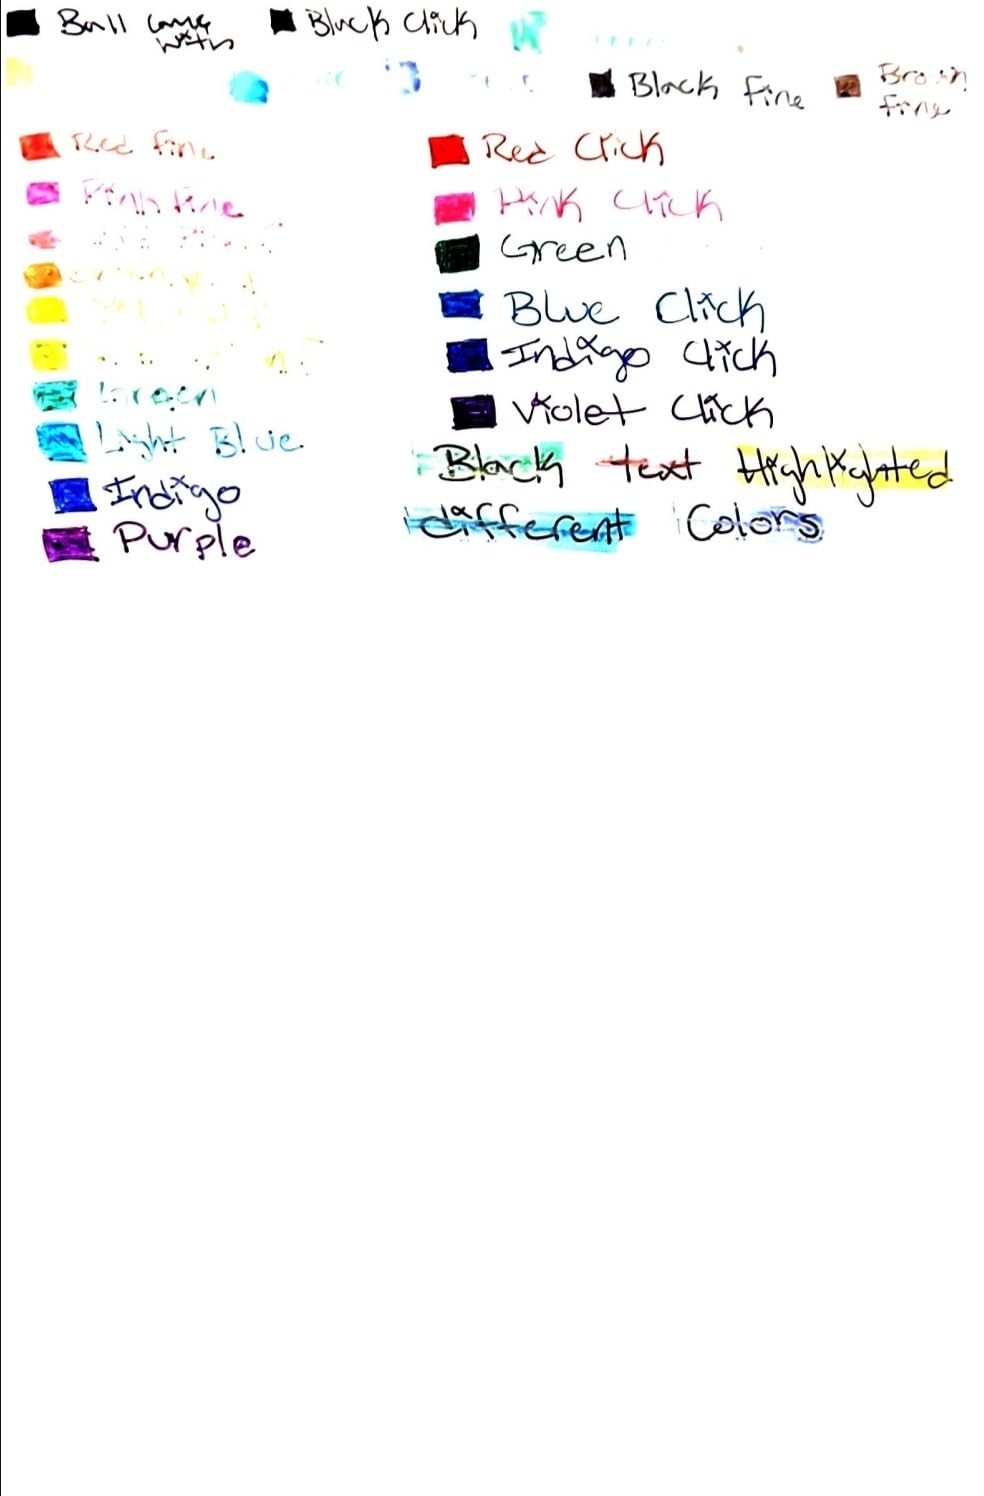 Ball came with
Black Click
Black Fine
Brown Fine
Red Fine
Pink Fine
Green
Light Blue
Indigo
Purple
Red Click
Pink Click
Green
Blue Click
Indigo Click
Violet Click
Black text Highlighted
different Colors